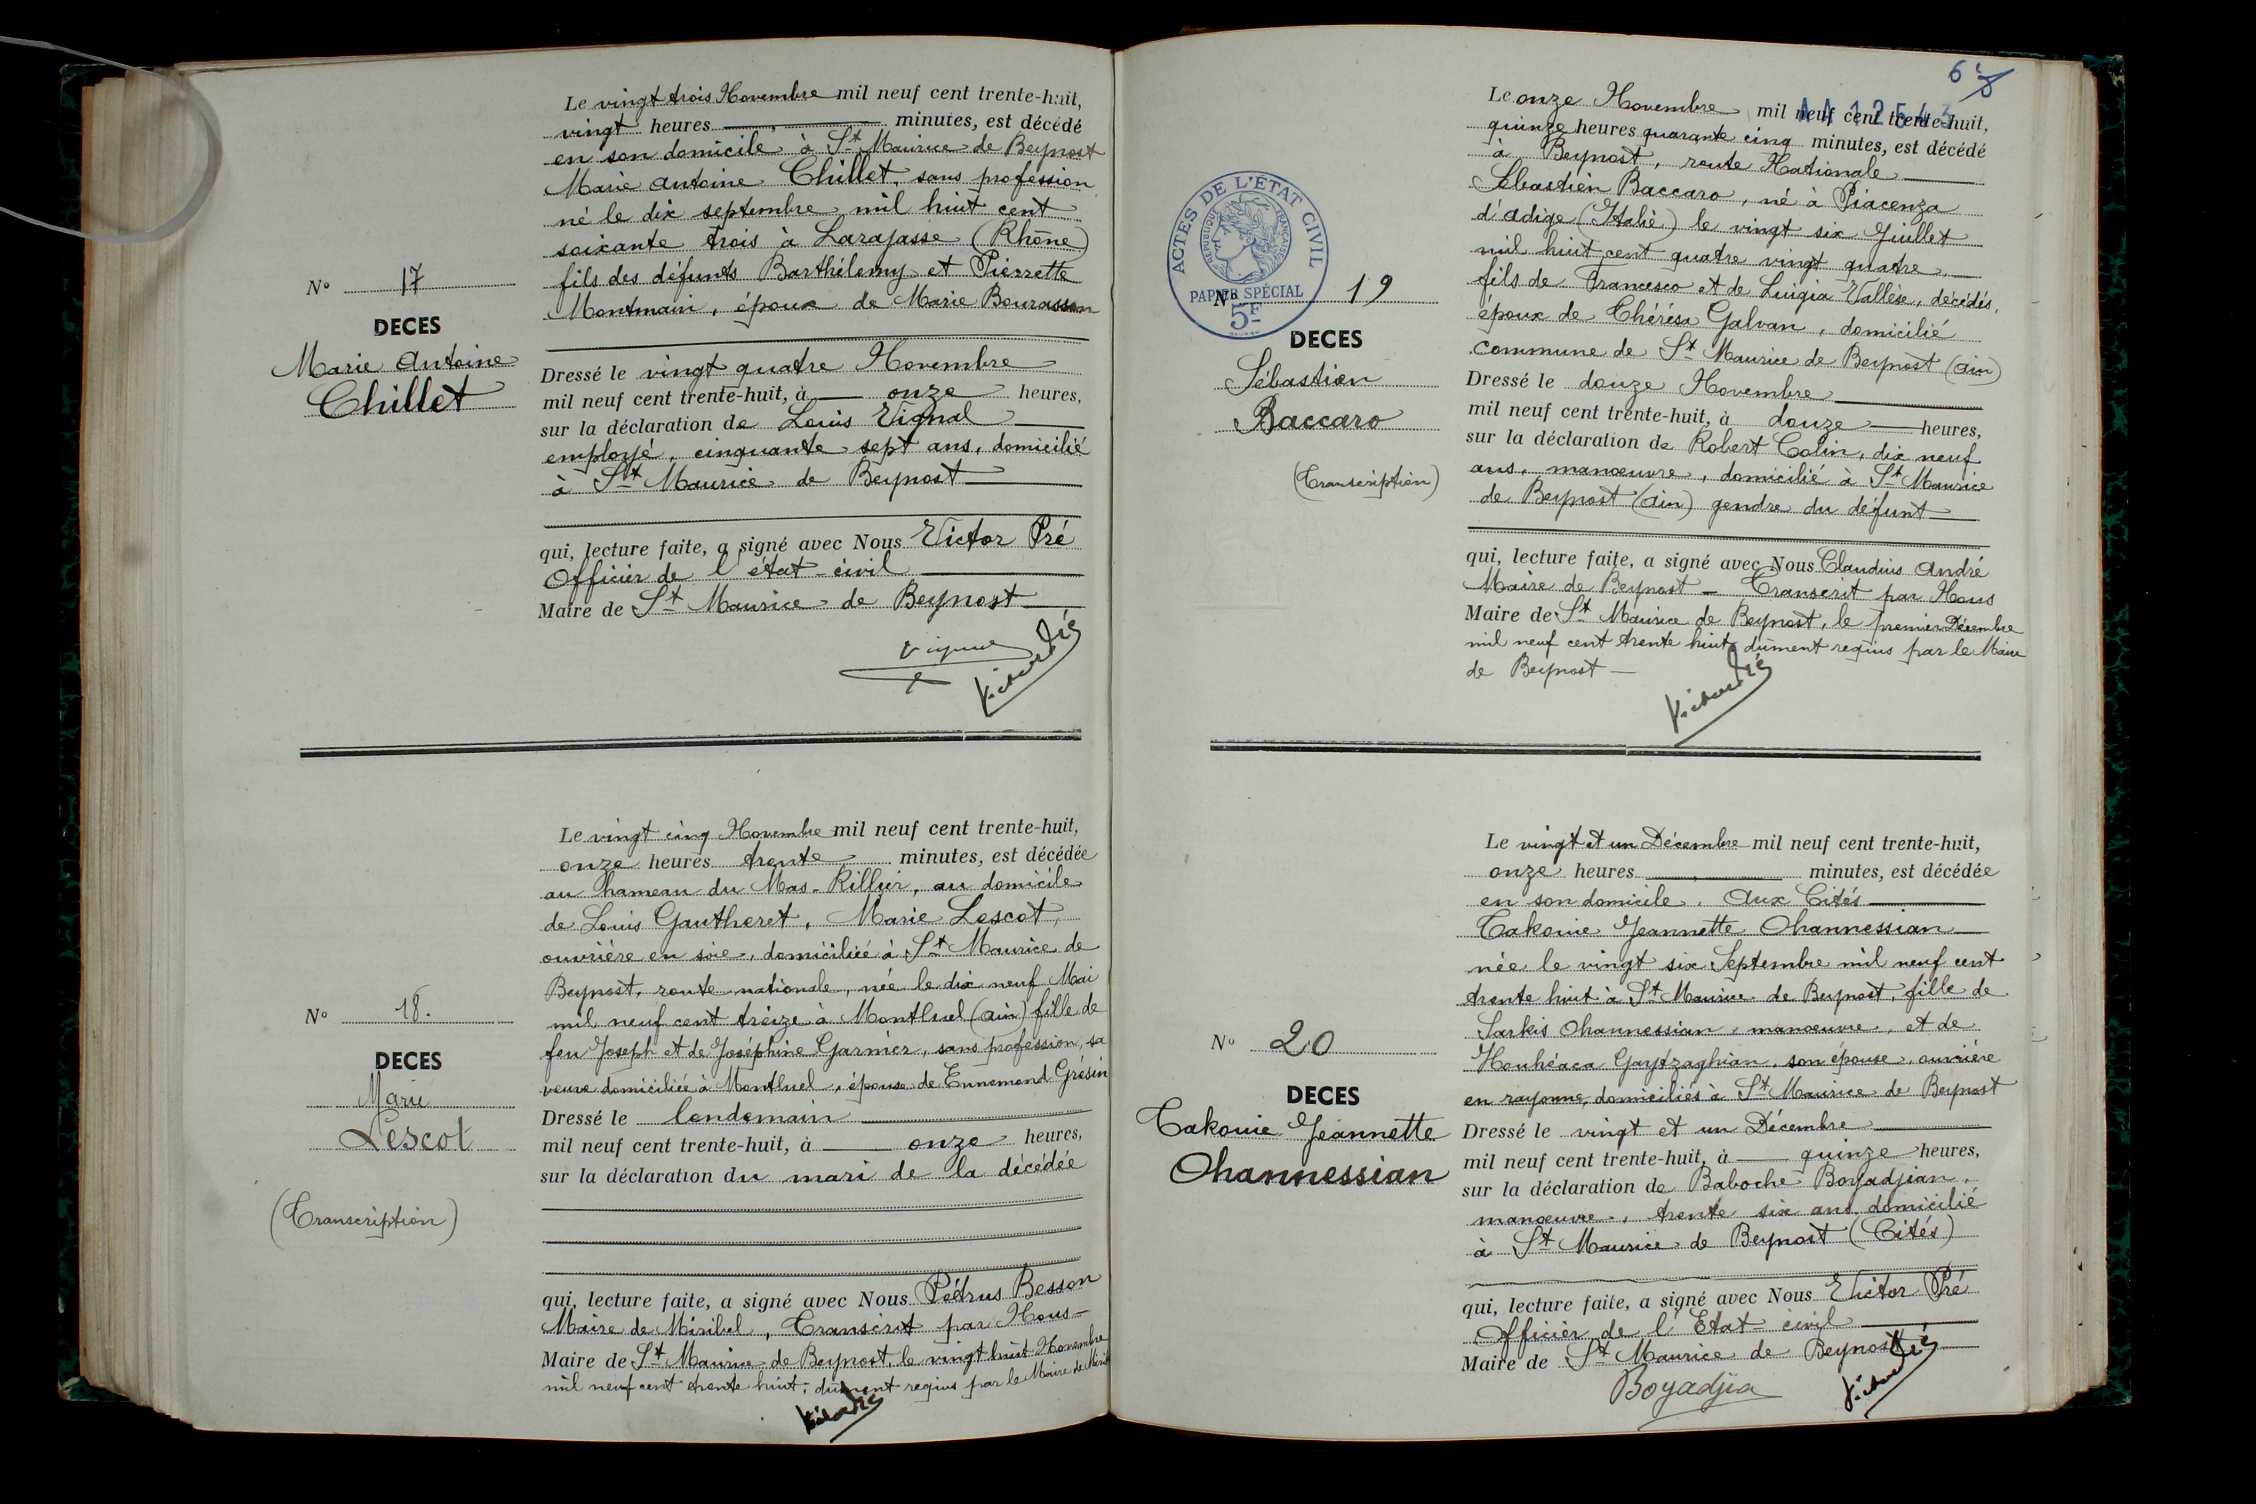 Le vingt trois Novembre mil neuf cent trente-huit,
vingt heures minutes, est décédé
en son domicile à St Maurice de Beynost
Marie Antoine Chillet, sans profession
né le dix septembre mil huit cent
soixante trois à Larajasse (Rhône)
fils des défunts Barthélemy et Pierrette
Montmain, époux de Marie Bourasson
N° 17
DECES
Marie Antoine
Chillet
Dressé le vingt quatre Novembre
mil neuf cent trente-huit, à onze heures,
sur la déclaration de Louis Vignal
employé, cinquante sept ans, domicilié
à St Maurice de Beynost
qui, lecture faite, a signé avec Nous Victor Pré
Officier de l'état-civil
Maire de St Maurice de Beynost
Le vingt cinq Novembre mil neuf cent trente-huit,
onze heures trente minutes, est décédée
au hameau du Mas-Rillier, au domicile
de Louis Gautheret, Marie Lescot,
ouvrière en soie, domiciliée à St Maurice de
Beynost, route nationale, née le dix neuf Mai
mil neuf cent treize à Montluel (Ain) fille de
feu Joseph et de Joséphine Garnier, sans profession, sa
veuve domiciliée à Montluel, épouse de Ennemond Grésin
N° 18.
DECES
Marie
Lescot
(Transcription)
Dressé le lendemain
mil neuf cent trente-huit, à onze heures,
sur la déclaration du mari de la décédée
qui, lecture faite, a signé avec Nous Pétrus Besson
Maire de Miribel, Transcrit par Nous
Maire de St Maurice de Beynost, le vingt huit Novembre
mil neuf cent trente huit, dûment requis par le Maire de
6
Le onze Novembre mil neuf cent trente-huit,
quinze heures quarante cinq minutes, est décédé
à Beynost, route Nationale
Sébastien Baccaro, né à Piacenza
d'Adige (Italie) le vingt six Juillet
mil huit cent quatre vingt quatre
fils de Francesco et de Luigia Vallèse, décédés,
époux de Thérésa Galvan, domicilié
commune de St Maurice de Beynost (Ain)
ACTES DE L'ÉTAT CIVIL
RÉPUBLIQUE FRANÇAISE
PAPIER SPÉCIAL
5F
N° 19
DECES
Sébastien
Baccaro
(Transcription)
Dressé le douze Novembre
mil neuf cent trente-huit, à douze heures,
sur la déclaration de Robert Colin, dix neuf
ans, manœuvre, domicilié à St Maurice
de Beynost (Ain) gendre du défunt
qui, lecture faite, a signé avec Nous Claudius André
Maire de Beynost - Transcrit par Nous
Maire de St Maurice de Beynost, le premier Décembre
mil neuf cent trente huit, dûment requis par le Maire
de Beynost
Le vingt et un Décembre mil neuf cent trente-huit,
onze heures minutes, est décédée
en son domicile, Aux Cités
Takouie Jeannette Ohannessian
née le vingt six Septembre mil neuf cent
trente huit à St Maurice de Beynost, fille de
Sarkis Ohannessian, manœuvre, et de
Houhéaca Gaytzaghian, son épouse, ouvrière
en rayonne, domiciliés à St Maurice de Beynost
N° 20
DECES
Takouie Jeannette
Ohannessian
Dressé le vingt et un Décembre
mil neuf cent trente-huit, à quinze heures,
sur la déclaration de Baboche Boyadjian,
manœuvre, trente six ans, domicilié
à St Maurice de Beynost (Cités)
qui, lecture faite, a signé avec Nous Victor Pré
Officier de l'Etat-civil
Maire de St Maurice de Beynost
Boyadjia